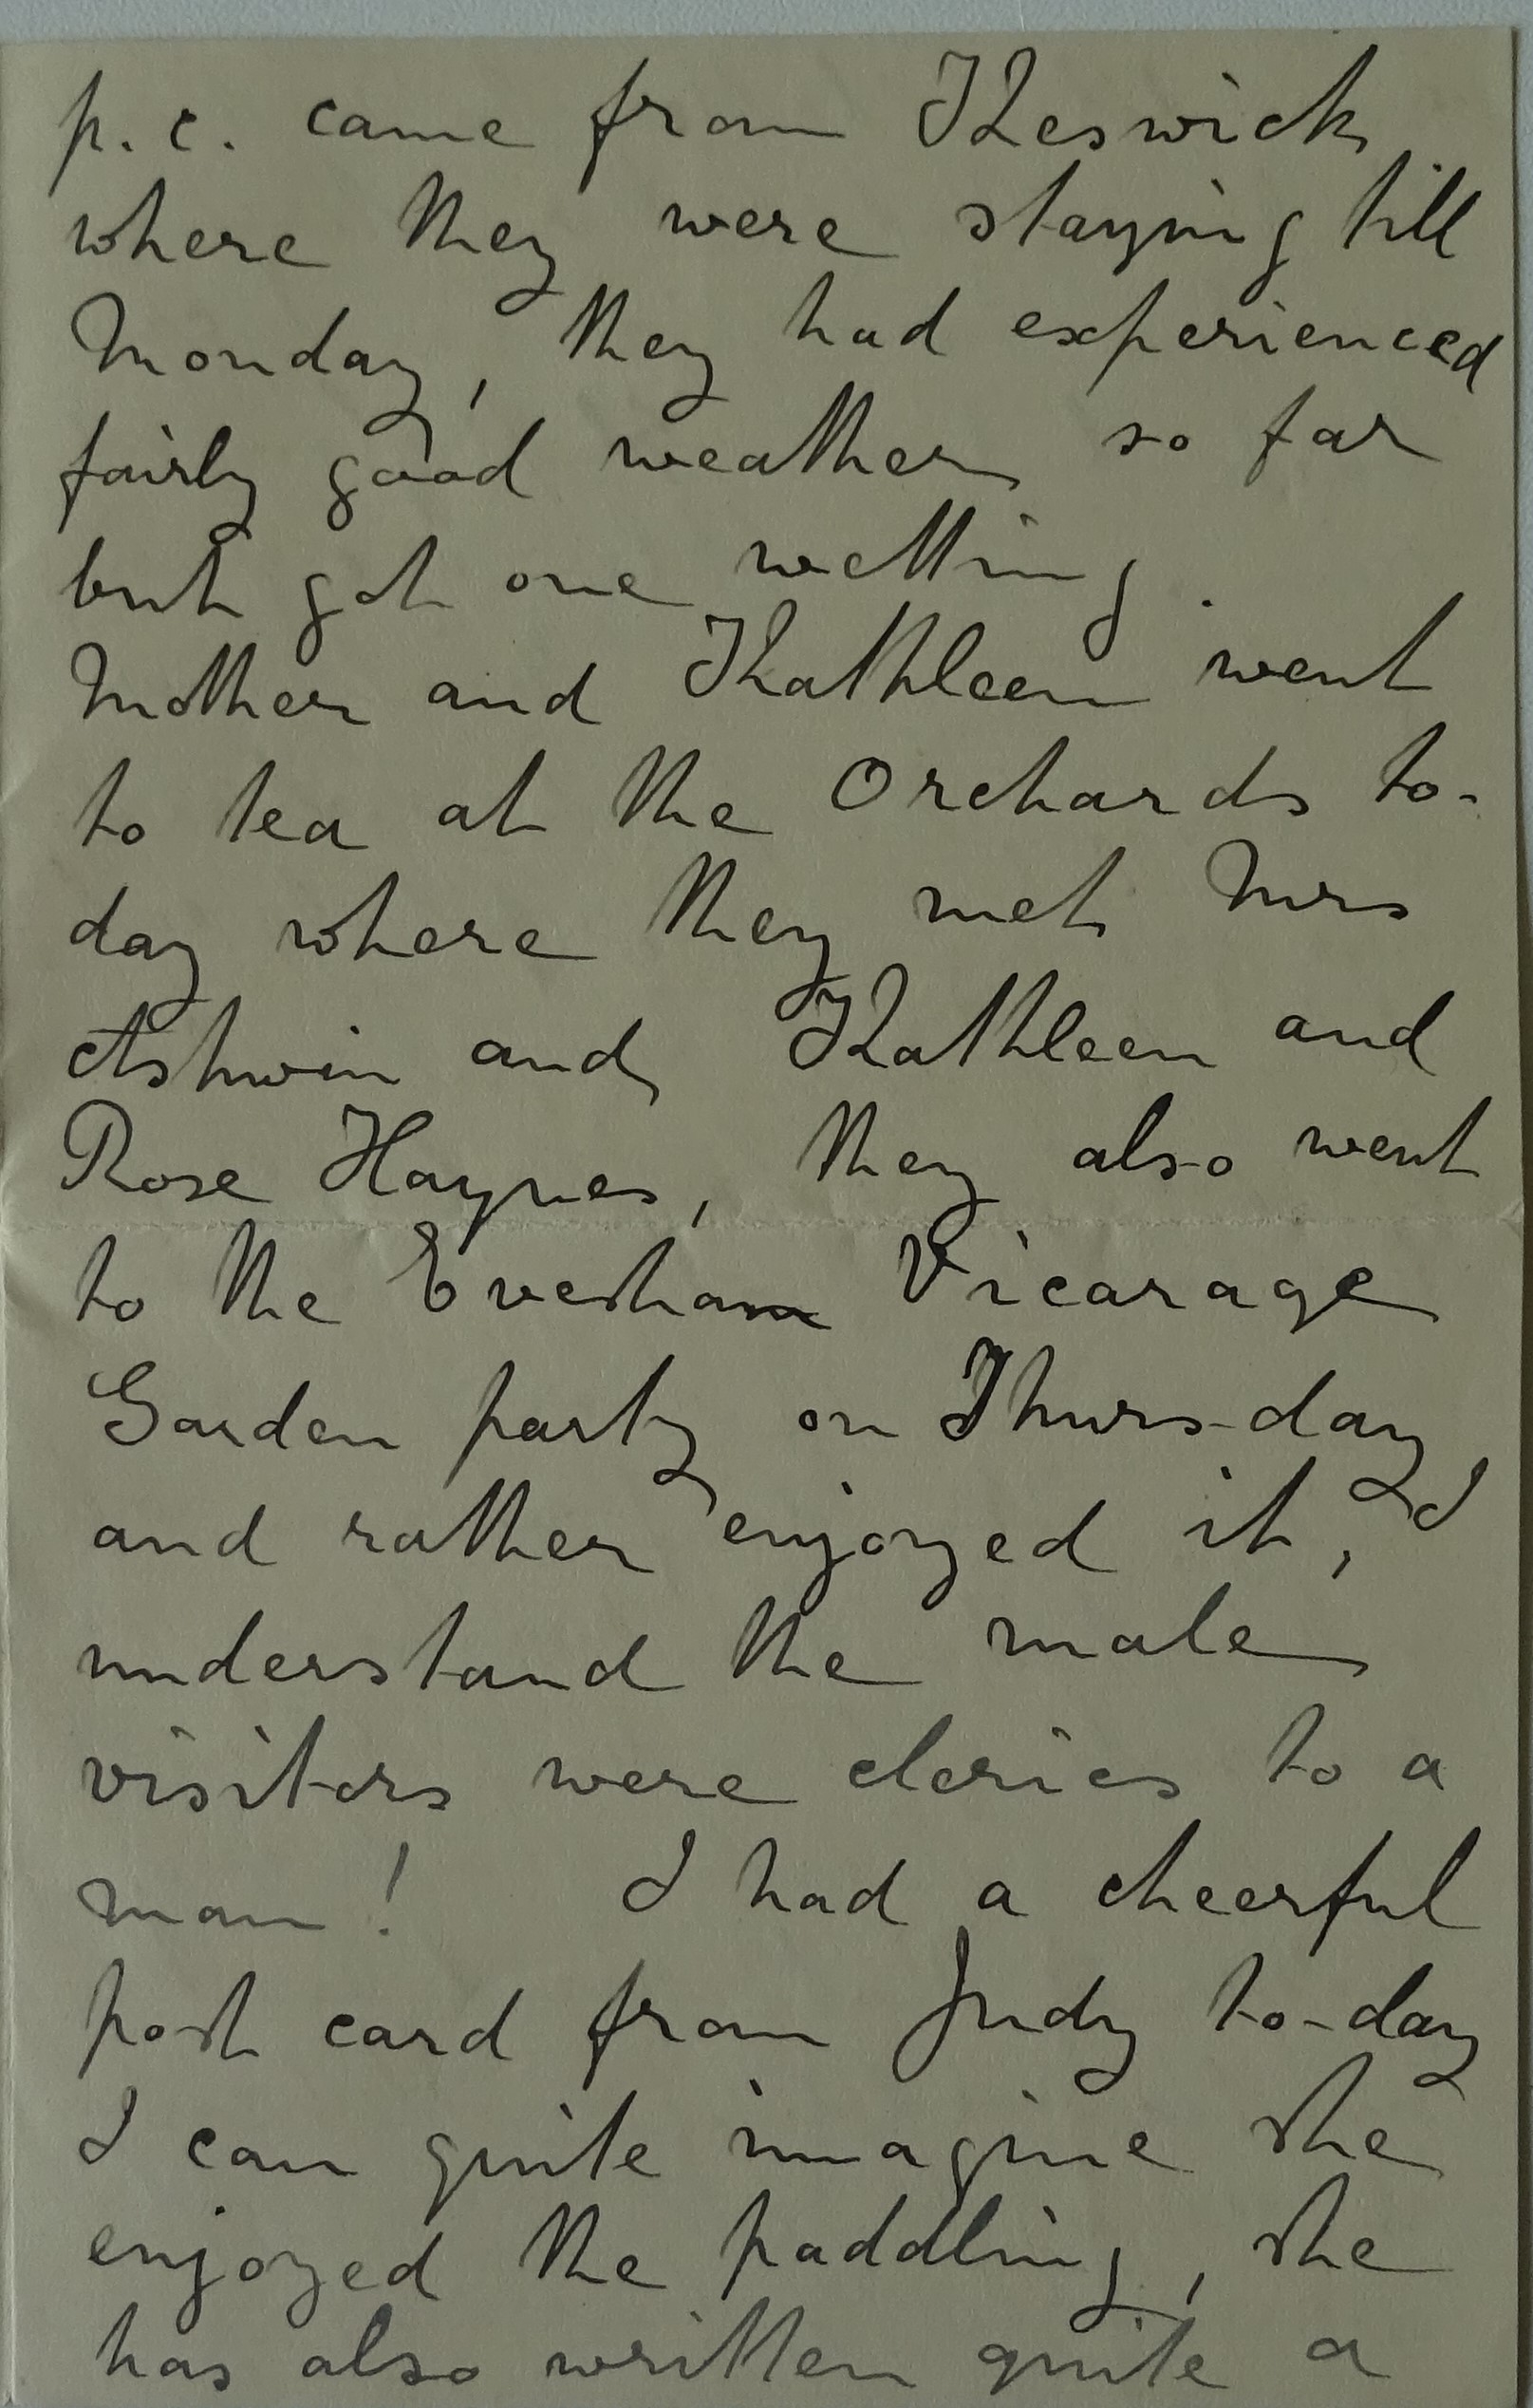 p.c. came from Keswick
where they were staying till
Monday, they had experienced
fairly good weather so far
but got one wetting.
Mother and Kathleen went
to tea at the Orchards to-
day where they met Mrs
Ashwin and Kathleen and
Rose Haynes, they also went
to the Evesham Vicarage
Garden party on Thursday
and rather enjoyed it, I
understand the male
visitors were clerics to a
man! I had a cheerful
post card from Judy to-day
I can quite imagine she
enjoyed the paddling, she
has also written quite a